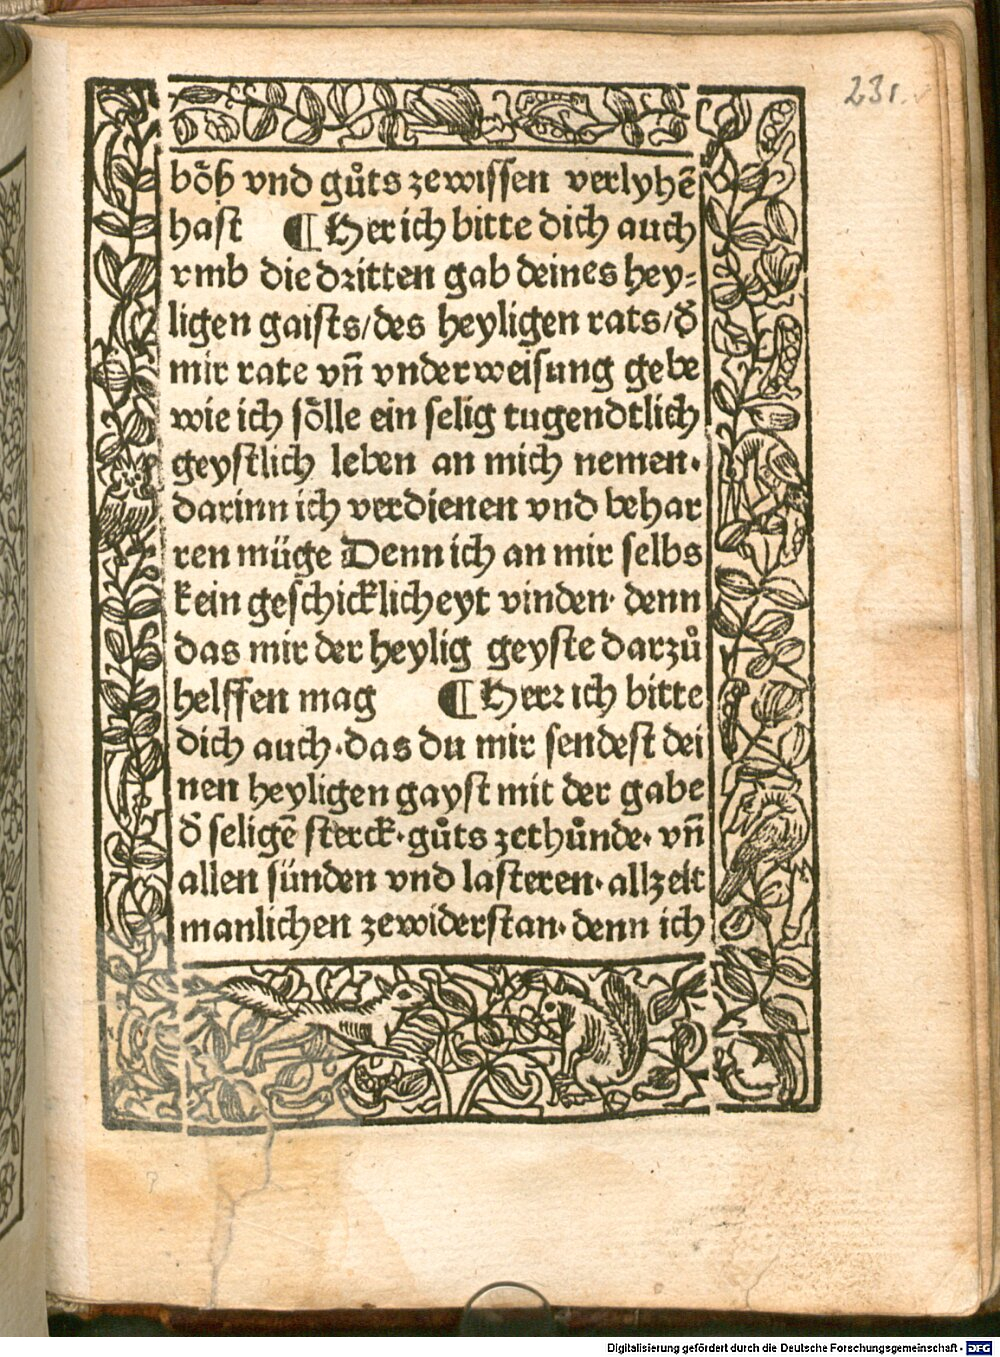 23r.
böß vnd gůts zewissen verlyhē
hast ¶ Her ich bitte dich auch
vmb die dritten gab deines hey⸗
ligen gaists/des heyligen rats/đ
mir rate vn̄ vnderweisung gebe
wie ich sölle ein selig tugendtlich
geystlich leben an mich nemen·
darinn ich verdienen vnd behar
ren müge Denn ich an mir selbs
kein geschicklicheyt vinden· denn
das mir der heylig geyste darzů
helffen mag ¶ Herr ich bitte
dich auch·das du mir sendest dei
nen heyligen gayst mit der gabe
đ seligē sterck·gůts zethůnde· vn̄
allen sünden vnd lasteren·allzeit
manlichen zewiderstan· denn ich
Digitalisierung gefördert durch die Deutsche Forschungsgemeinschaft - DFG